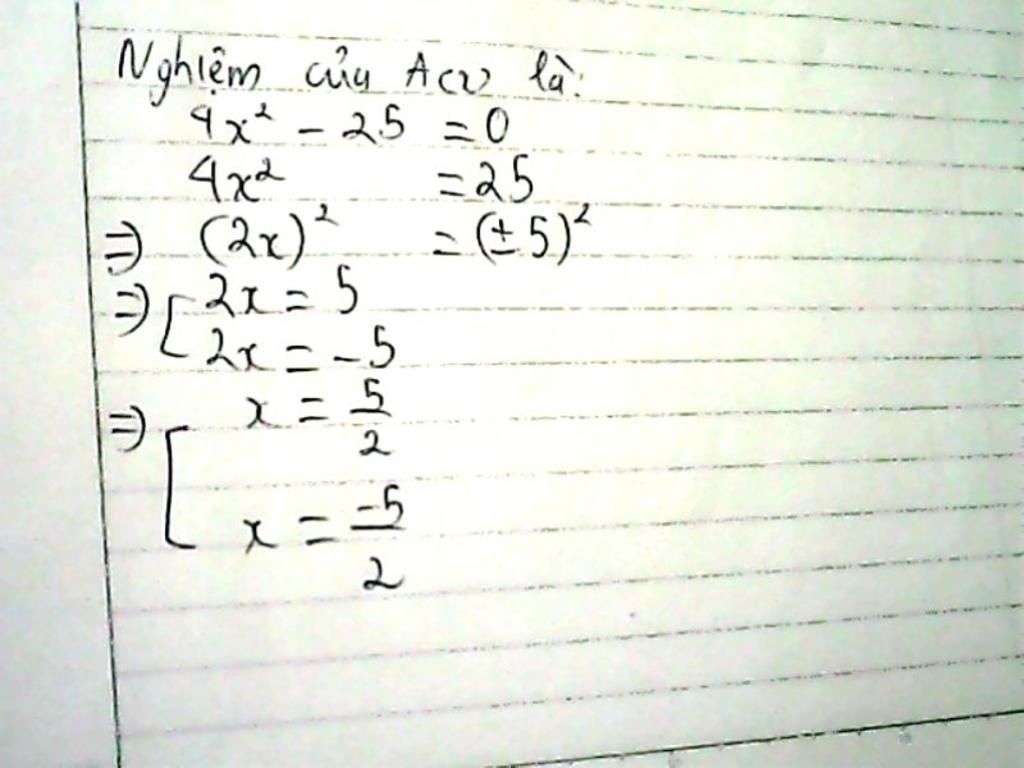 Nghiệm của A(x) là:
4x² - 25 = 0
4x² = 25
=> (2x)² = (±5)²
=> [ 2x = 5
2x = -5
=> [ x = 5/2
x = -5/2